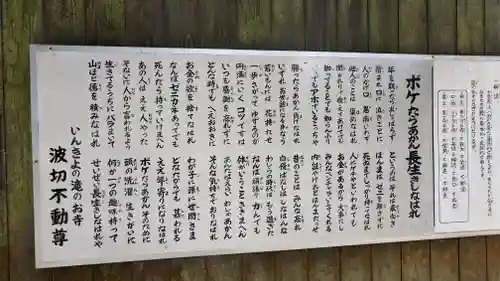 ボケたらあかん長生きしなはれ
年をとったら出しゃばらず
憎まれ口に泣きごとに
人のかげ口 愚痴いわず
他人のことは褒めなはれ
聞かれりゃ教えてあげてでも
知ってることでも知らんふり
いつでもアホでいるこっちゃ
勝ったらあかん負けなはれ
いずれお世話になる身なら
若いもんには 花持たせ
一歩さがって ゆずるのが
円満にいく コツですわ
いつも感謝を 忘れずに
どんな時でも へえおおきに
お金の欲を 捨てなはれ
なんぼゼニカネあってても
死んだら持っていけまへん
あの人は ええ人やった
そないに人から言われるよう
生きてるうちに バラまいて
山ほど徳を 積みなはれ
というのは それは表向き
ほんまは ゼニを離さずに
死ぬまでしっかり持ってなはれ
人にケチやと いわれても
お金があるから 大事にし
みんなベンチャラいうてくれる
内証やけど ほんまだっせ
昔のことは みんな忘れ
自慢ばなしは しなはんな
わしらの時代は もう過ぎた
なんぼ頑張り 力んでも
体がいうこと ききまへん
あんたはえらい わしゃあかん
そんな気持で おりなはれ
わが子に孫に 世間さま
どなたからでも 慕われる
ええ年寄りに なりなはれ
ボケたらあかん そのために
頭の洗濯 生きがいに
何か一つの 趣味持って
せいぜい長生き しなはれや
いんごしの滝のお寺
波切不動尊